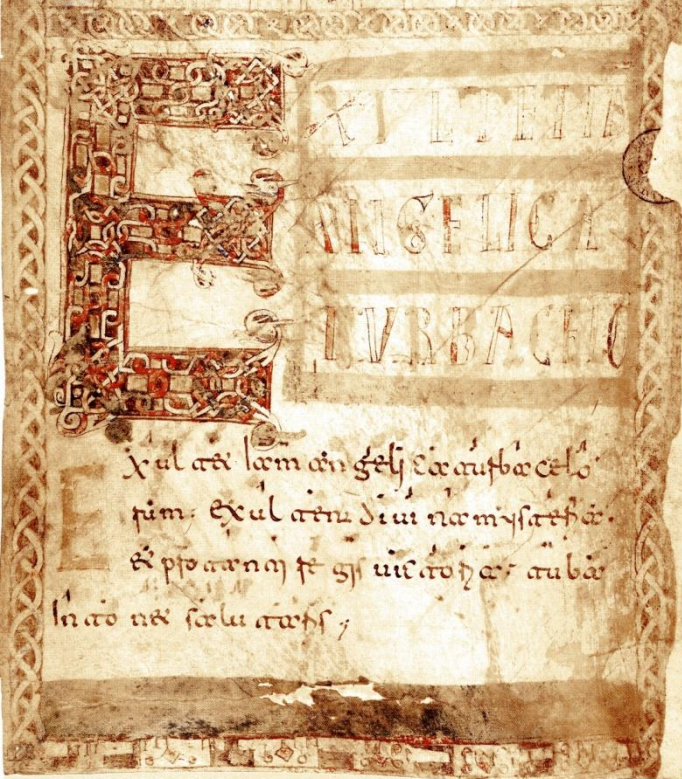 EXULTETIA
ANGELICA
TURBACELO
Exultet Iam angelica turba celo
rum: exultent divina mysteria.
et pro tanti regis victoria: tuba
Intonet salutaris;